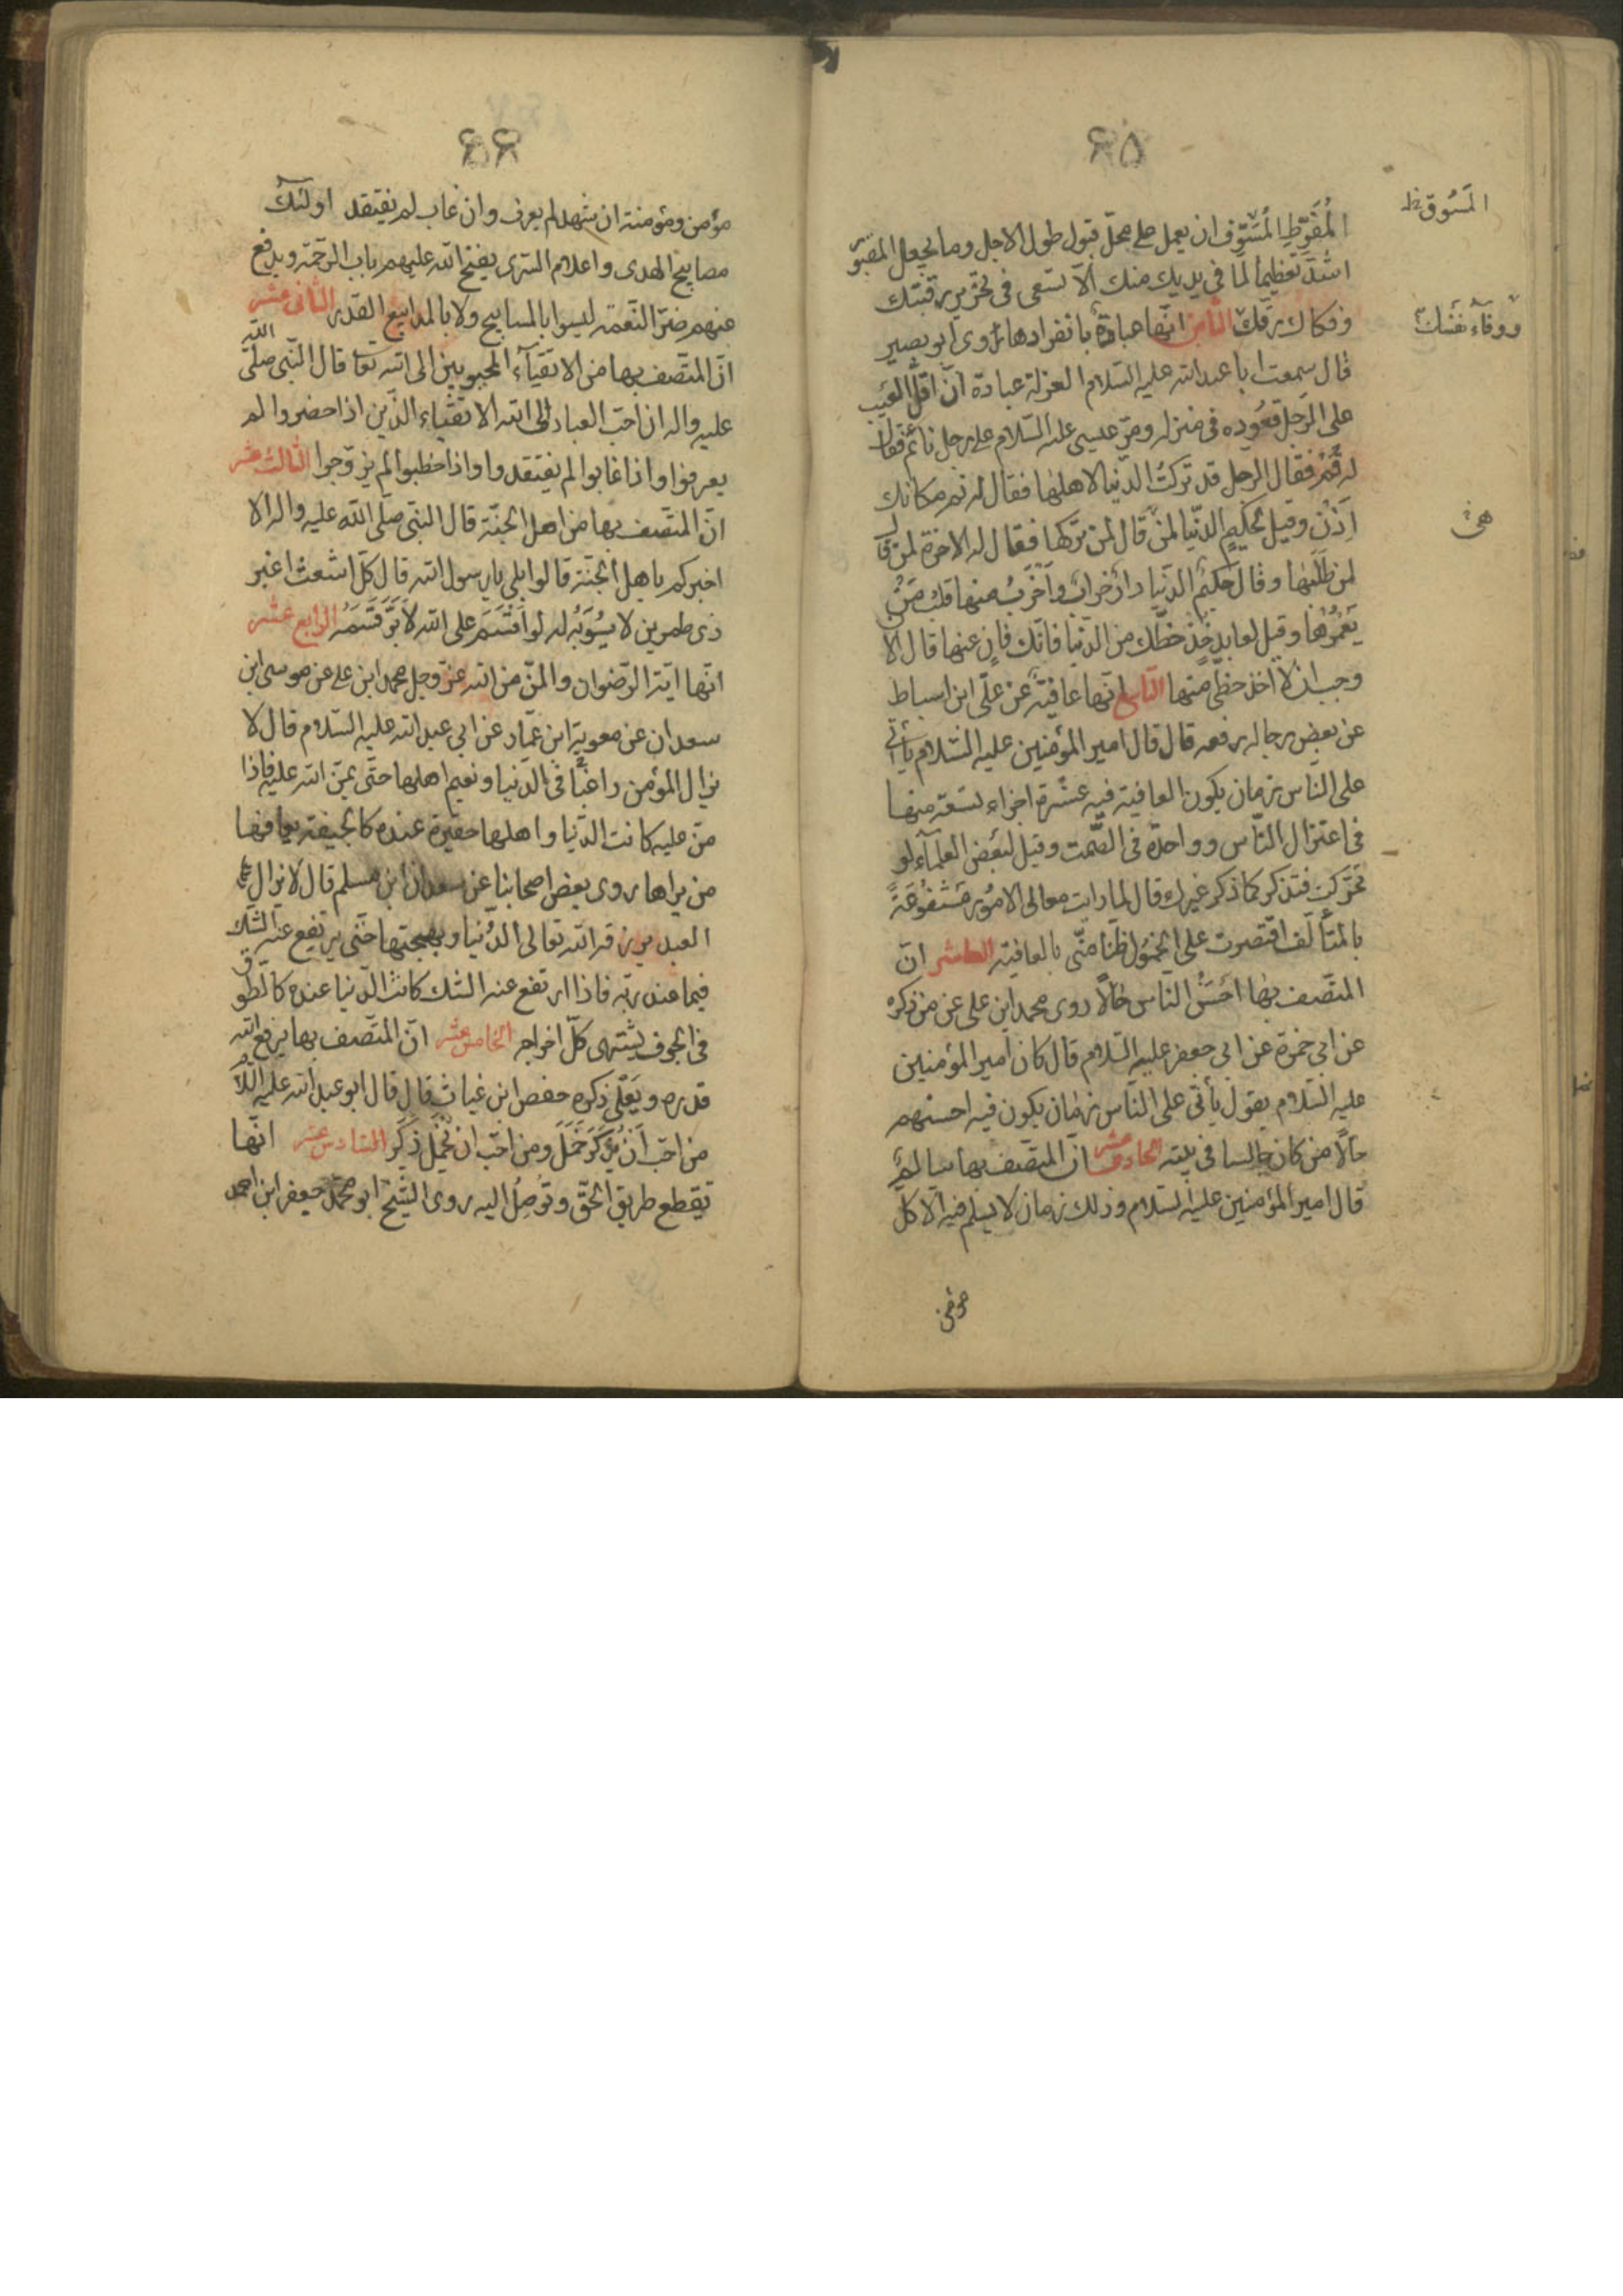 ٤٥
المفرّط المسوّف ان يعمل على محل قبول طول الاجل وما يجعل المقبور
اشدّ تعظيماً لما في يديك منك ألا تسعى في تحرير رقبتك
وفكاك رقك الثامن انّها عبادة بانفرادها روى ابو بصير
قال سمعت ابا عبد الله عليه السلام العزلة عبادة انّ اقلّ العيب
على الرّجل قعوده في منزله ومرّ عيسى عليه السّلام على رجل نائم فقال
له قم فقال الرجل قد تركت الدّنيا لاهلها فقال له نم مكانك
اذن وقيل لحكيم الدّنيا لمن قال لمن تركها فقال له الاخرة لمن قال
لمن طلبها وقال حكيم الدّنيا دار خراب واخرب منها قلب من
يعمرها وقيل لعابد خذ حظّك من الدّنيا فانّك فانٍ عنها قال الان
وجب ان لا آخذ حظّي منها التاسع انّها عافية عن علّي ابن اسباط
عن بعض رجاله رفعه قال قال امير المؤمنين عليه السّلام يأتي
على الناس زمان يكون العافية فيه عشرة اجزاء تسعة منها
في اعتزال النّاس وواحدة في الصّمت وقيل لبعض العلمآء لو
تحرّكت فتذكر كما ذكر غيرك قال لما رايت معالى الامور مشفوعة
بالمتألف اقتصرت على الخمول ظنّا منّى بالعافية العاشر انّ
المتّصف بها احسن الناس حالاً روى محمد ابن على عن من ذكره
عن ابي حمزة عن ابي جعفر عليه السّلام قال كان امير المؤمنين
عليه السّلام يقول يأتي على النّاس زمان يكون فيه احسنهم
حالاً من كان جالسا في بيته الحاديعشر انّ المتّصف بها سالم
قال امير المؤمنين عليه السّلام وذلك زمان لا يسلم فيه الّا كلّ
المسوق ظ
ووقآء نفسك
هى
٤٦
مؤمن ومؤمنة ان شهد لم يعرف وان غاب لم يفتقد اولئك
مصابيح الهدى واعلام السّرى يفتح الله عليهم باب الرّحمة ويدفع
عنهم ضرّ النّعمة ليسوا بالمسابيح ولا بالمذاييع القدر الثانى عشر
انّ المتّصف بها من الاتقيآء المحبوبين الى الله تعا قال النّبى صلّى الله
عليه واله ان احبّ العباد الى الله الاتقياء الذين اذا حضروا لم
يعرفوا واذا غابوا لم يفتقدوا واذا خطبوا لم يزوّجوا الثالث عشر
انّ المتّصف بها من اهل الجنّة قال النبّى صلّى الله عليه واله الا
اخبركم باهل الجنّة قالوا بلى يا رسول الله قال كلّ اشعث اغبر
ذى طمرين لا يؤبه له لو اقسم على الله لابرّ قسمه الرابع عشر
انّها اية الرّضوان والمنّ من الله عزّ وجل محمد ابن على عن موسى ابن
سعدان عن معوية ابن عمّار عن ابي عبد الله عليه السّلام قال لا
يزال المؤمن راغباً في الدّنيا ونعيم اهلها حتّى يمنّ الله عليه فاذا
منّ عليه كانت الدّنيا واهلها حقيرة عنده كالجيفة يعافها
من يراها روى بعض اصحابنا عن سعدان ابن مسلم قال لا يزال
العبد يرزقه الله تعالى الدّنيا وبهجتها حتّى يرتفع عنه الشّك
فيما عند ربّه فاذا ارتفع عنه الشّك كانت الدّنيا عنده كالطوق
في الجوف يشتهى كلّ اخراجه الخامس عشر انّ المتّصف بها يرفع الله
قدره ويعلى ذكره حفص ابن غياث قال قال ابو عبد الله عليه السّلام
من احبّ ان يذكر خمل ومن احبّ ان يخمل ذكر السادس عشر انّها
تقطع طريق الحقّ وتوصل اليه روى الشّيخ ابو محمّد جعفر ابن احمد